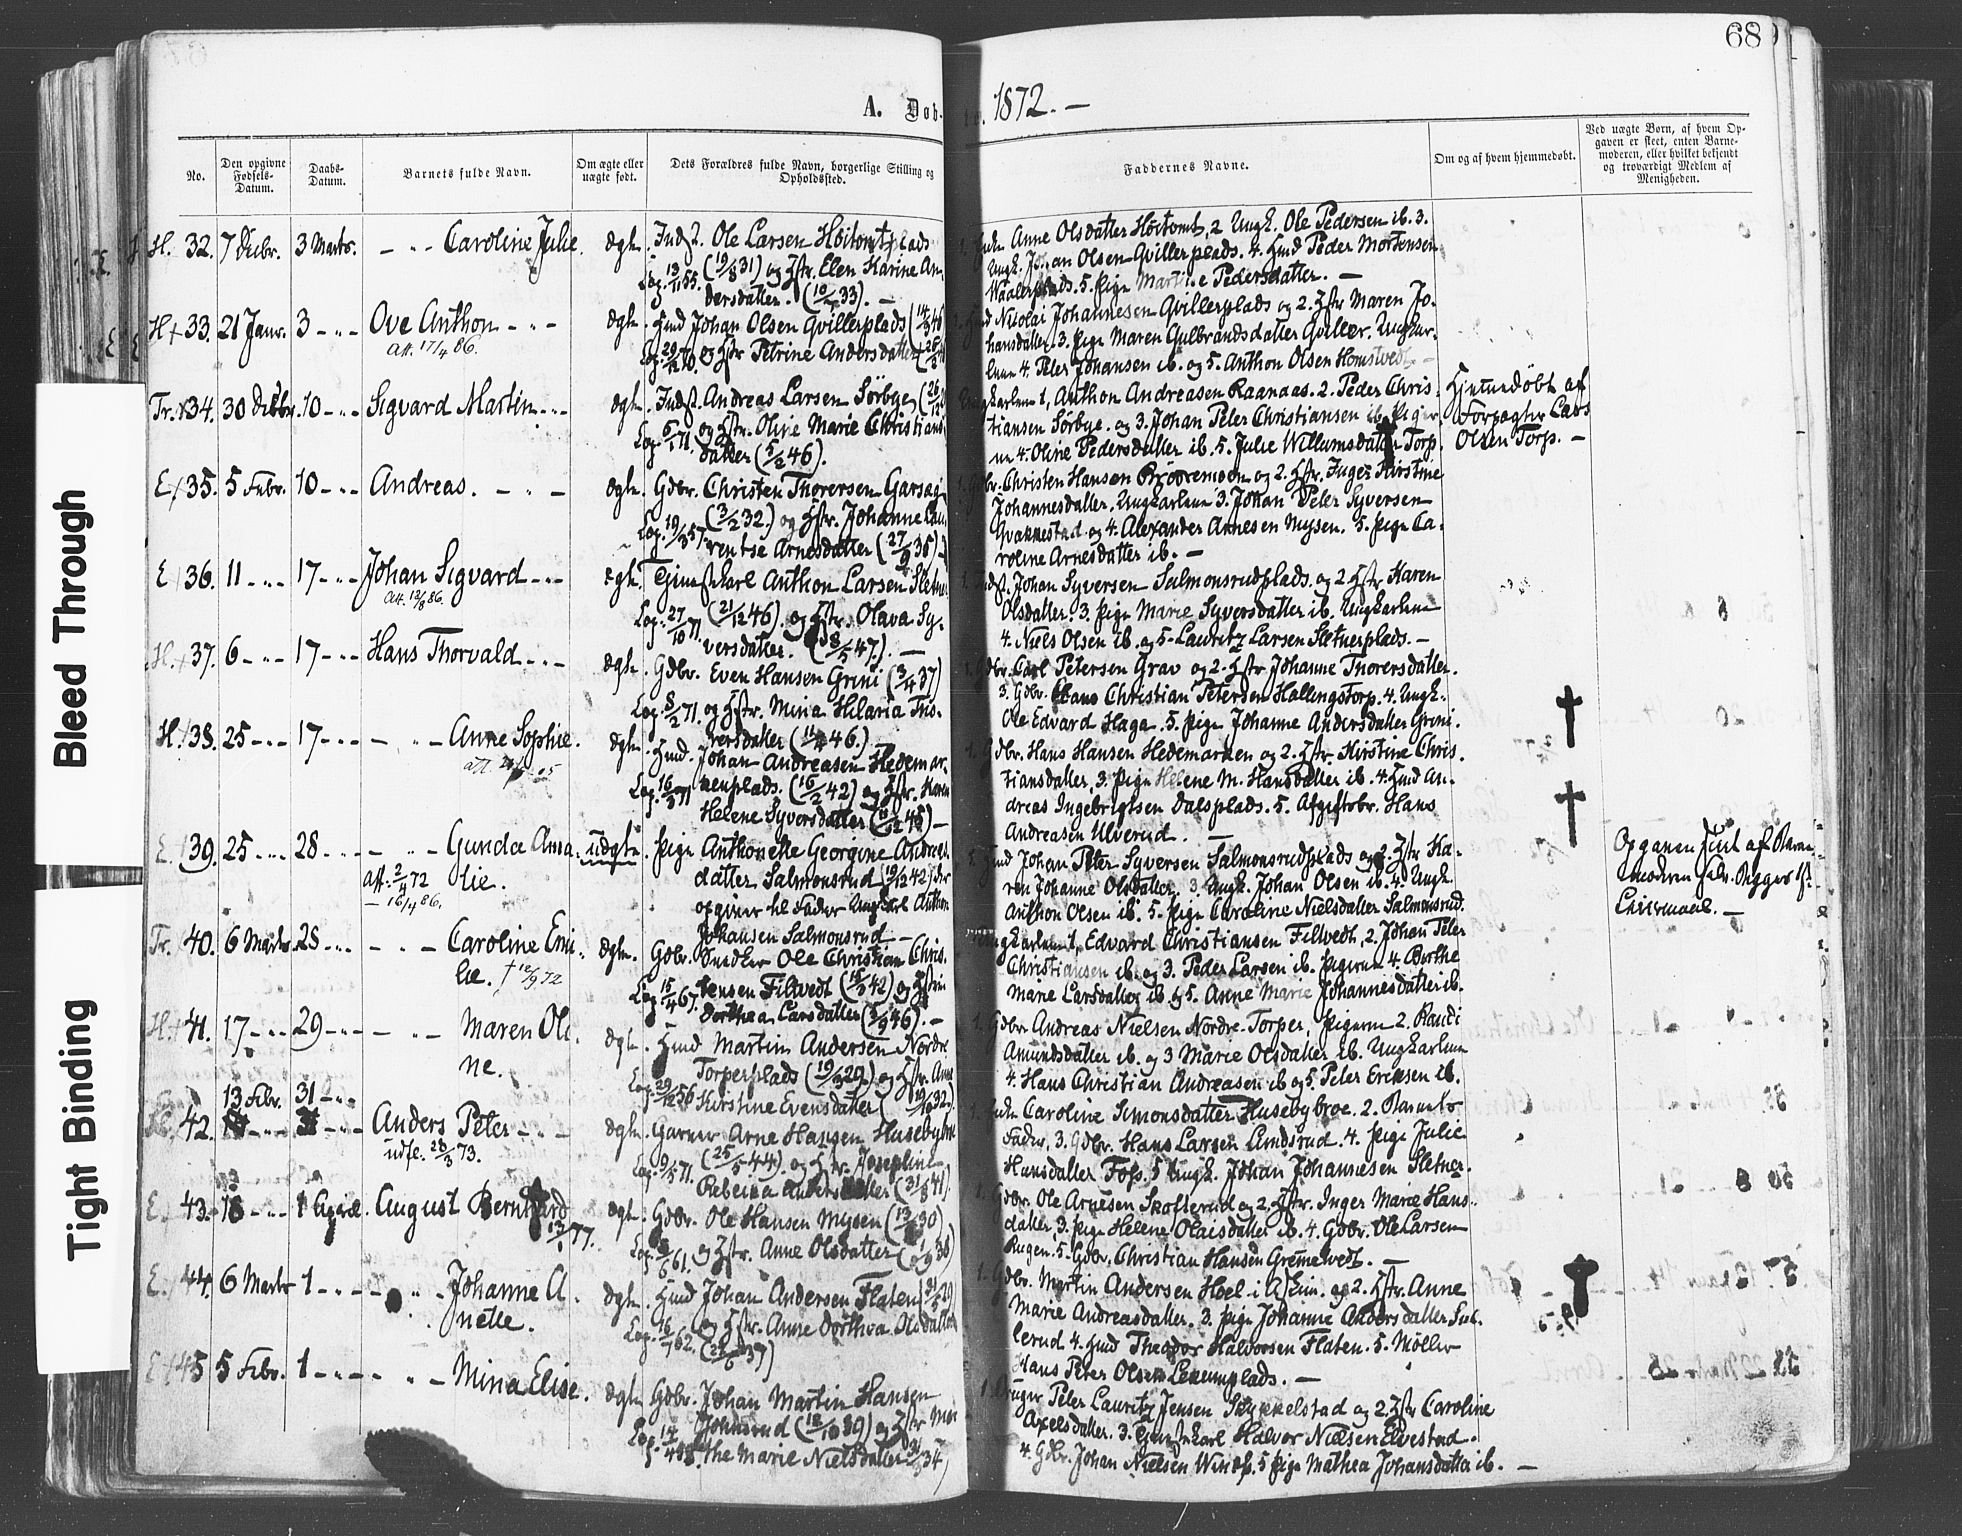 68
A. Døb-
1872. —
No.
Den opgivne Fødsels-Datum.
Daabs-Datum.
Barnets fulde Navn.
Om ægte eller uægte født.
Dets Forældres fulde Navn, borgerlige Stilling og Opholdssted.
Faddernes Navne.
Om og af hvem hjemmedøbt.
Ved uægte Børn, af hvem Op-
gaven er skeet, enten Barne-
moderen, eller hvilket bekjendt
og troværdigt Medlem af
Menigheden.
Bleed Through
Tight Binding
H. 32. 7 Decbr. 3 Marts. — „ — Caroline Julie. ægte. Indst. Ole Larsen Höitomtplads
Cop. 13/11 55. (19/8 31) og Hstr. Elen Karine An-
dersdatter. (10/ 33). —
Anne Olsdatter Höitomt, 2 Ungk. Ole Pedersen ib. 3.
Ungk. Johan Olsen Gvillerplads. 4. Hmd Peder Mortensen
Waalerplads. 5. Pige Martine Pedersdatter. —
H 33. 21 Janr. 3 — „ — Ove Anthon — „ — ægte. Hmd Johan Olsen Gvillerplads
att. 17/4 86.
Cop. 29/12 70. og Hstr Petrine Andersdatter
1. Hmd Nicolai Johannesen Gvillerplads og 2. Hstr Maren Jo-
hansdatter. 3. Pige Maren Gulbrandsdatter Gviller. Ungkar-
lene 4. Peter Johansen ib. og 5. Anthon Olsen Homstvedt —
Tr. 34. 30 Decbr. 10 — „ — Sigvard Martin — „ — ægte. Indst. Andreas Larsen Sörbye
Cop. 6/1 71. og Hstr. Oline Marie Christians
datter (5/2 46).
Ungkarlene 1, Anthon Andreasen Raanaas. 2. Peder Chris-
tiansen Sörbye. og 3. Johan Peter Christiansen ib. Piger-
ne 4. Oline Pedersdatter ib. 5. Julie Willumsdatter Torp.
Hjemmedöbt af
Forpagter Lars
Olsen Torp. —
E. 35. 5 Febr. 10 — „ — Andreas. — „ — ægte. Gdbr. Christen Thorersen Garseg
Cop. 19/3 57. (3/2 32.) og Hstr. Johanne Lau
rentse Arnesdatter (27/9 36)
1. Gdbr. Christen Hansen og 2. Hstr. Inger Kirstine
Johannesdatter. Ungkarlene 3. Johan Peter Syversen
og 4. Alexander Arnesen Mysen. 5. Pige Ca-
roline Arnesdatter ib. —
E 36. 11 — „ — 17 — „ — Johan Sigvard — „ — ægte. Tjenestkarl Anthon Larsen Sletner
att. 12/8 86.
Cop. 27/10 71. (21/12 46). og Hstr. Olava Sy-
versdatter. (8/5 47.). —
1. Indst. Johan Syversen Salmonsrudplads. og 2. Hstr Karen
Olsdatter. 3. Pige Marie Syversdatter ib. Ungkarlene
4. Niels Olsen ib. og 5. Lauritz Larsen Sletnerplads. —
H. 37. 6 — „ — 17 — „ — Hans Thorvald — „ — ægte. Gdbr. Even Hansen Grini (3/4 37)
Cop. 8/2 71. og Hstr. Mina Hilaria Tho-
rersdatter ( 46.)
1. Gdbr. Carl Petersen Grav og 2. Hstr Johanne Thorersdatter.
3. Gdbr. Hans Christian Petersen Hallingstorp. 4. Ungk.
Ole Edvard Haga. 5. Pige Johanne Andersdatter Grini.
H. 38. 25 — „ — 17 — „ — — „ — Anne Sophie. ægte. Hmd. Johan Andreasen Hedemar-
kenplads. (16/2 42) og Hstr. Karen
Helene Syversdatter
1. Gdbr. Hans Hansen Hedemarken og 2. Hstr Kirstine Chris-
tiansdatter, 3. Pige Helene M. Hansdatter ib. 4. Hmd An-
dreas Ingebrigtsen Dalsplads. 5. Afgiftsbr. Hans
Andreasen Ulverud. —
E. 39. 25 — „ — 28 — „ — — „ — Gunda Ama-
lie.
att. 2/4 72
— 16/4 86.
uægte. Pige Anthonette Georgine Andreas-
datter Salmonsrud (19/12 42)
opgiver til Fader Ungkarl Anthon
Johansen Salmonsrud —
Hmd Johan Peter Syversen Salmonsrudplads og 2. Hstr Ka-
ren Johanne Olsdatter. 3. Ungk. Johan Olsen ib. 4. Ungk.
Anthon Olsen ib. 5. Pige Caroline Nielsdatter Salmonsrud.
Opgaven skeet af Barne-
moderen selv. Begges 1st
Leiermaal. —
Tr. 40. 6 Marts 28 — „ — — „ — Caroline Emi-
lie. † 12/9 72
ægte. Gdbr. Snedker Ole Christian Chris-
tensen Filtvedt (15/ 42) og Hstr
Cop. 15/4 67. Dorthea Larsdatter (3/9 46). —
Ungkarlene 1, Edvard Christiansen Filtvedt, 2. Johan Peter
Christiansen ib. og 3. Peder Larsen ib. Pigerne 4. Berthe
Marie Larsdatter ib. og 5. Anne Marie Johannesdatter ib.
H. 41. 17 — „ — 29 — „ — — „ — Maren Oli-
ne.
ægte. Hmd Martin Andersen Nordre
Torperplads (19/3 29.) og Hstr. Anne
Cop. 29/12 56 Kirstine Evensdatter
1. Gdbr. Andreas Nielsen Nordre-Torper, Pigerne 2. Randi
Amundsdatter ib. og 3 Marie Olsdatter ib. Ungkarlene
4. Hans Christian Andreasen ib og 5. Peter Eriksen ib.
42. 13 Febr. 31 — „ — Anders Peter — „ — ægte. Garver Arne Hansen Husebybroe
udfl. 28/3 73.
Cop. 9/5 71. (25/5 44). og Hstr. Josephine
Rebekka Andersdatter (31/8 41)
1. Caroline Simonsdatter Husebybroe. 2. Barnets
Fader. 3. Gdbr. Hans Larsen Lundsrud. 4. Pige Julie
Hansdatter Foss. 5 Ungk. Johan Johannesen Sletner.
E. 43. 18 — „ — 1 April. August Bernhard ægte. Gdbr. Ole Hansen Mysen
† 13/1 77.
og Hstr. Anne Olsdatter
1. Gdbr. Ole Arnesen Skofterud og 2. Hstr. Inger Marie Hans-
datter, 3. Pige Helene Olaisdatter ib. 4. Gdbr. Ole Larsen
Rugen. 5. Gdbr. Christian Hansen Gremelvedt. —
E. 44. 6 Marts 1 — „ — — „ — Johanne A-
nette.
ægte. Hmd Johan Andersen Flaten
Cop. 16/ 62. og Hstr. Anne Dorthea Olsdatter
1. Gdbr. Martin Andersen Hoel i Askim. og 2. Hstr. Anne
Marie Andreasdatter. 3. Pige Johanne Andersdatter Sul-
lerud 4. Hmd Theodor Halvorsen Flaten. 5. Möller
Hans Peter Olsen Lekumplads. —
E 45 5 Febr. 1 — „ — — „ — Mina Elise. ægte. Gdbr. Johan Martin Hansen
Johnsrud (12/10 30) og Hstr Mar-
the Marie Nielsdatter
1 Bruger Peter Lauritz Jensen Skykkelstad og 2. Hstr Caroline
Axelsdatter. 3. Tjenstkarl Halvor Nielsen Elvestad.
4. Gdbr. Johan Nielsen 5 Pige Mathea Johansdatter ib. —